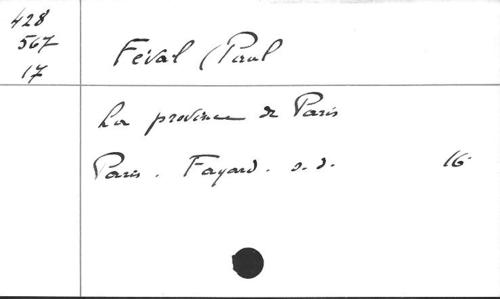 428
567
17
Féval (Paul
La province de Paris
Paris. Fayard. s.d. 16